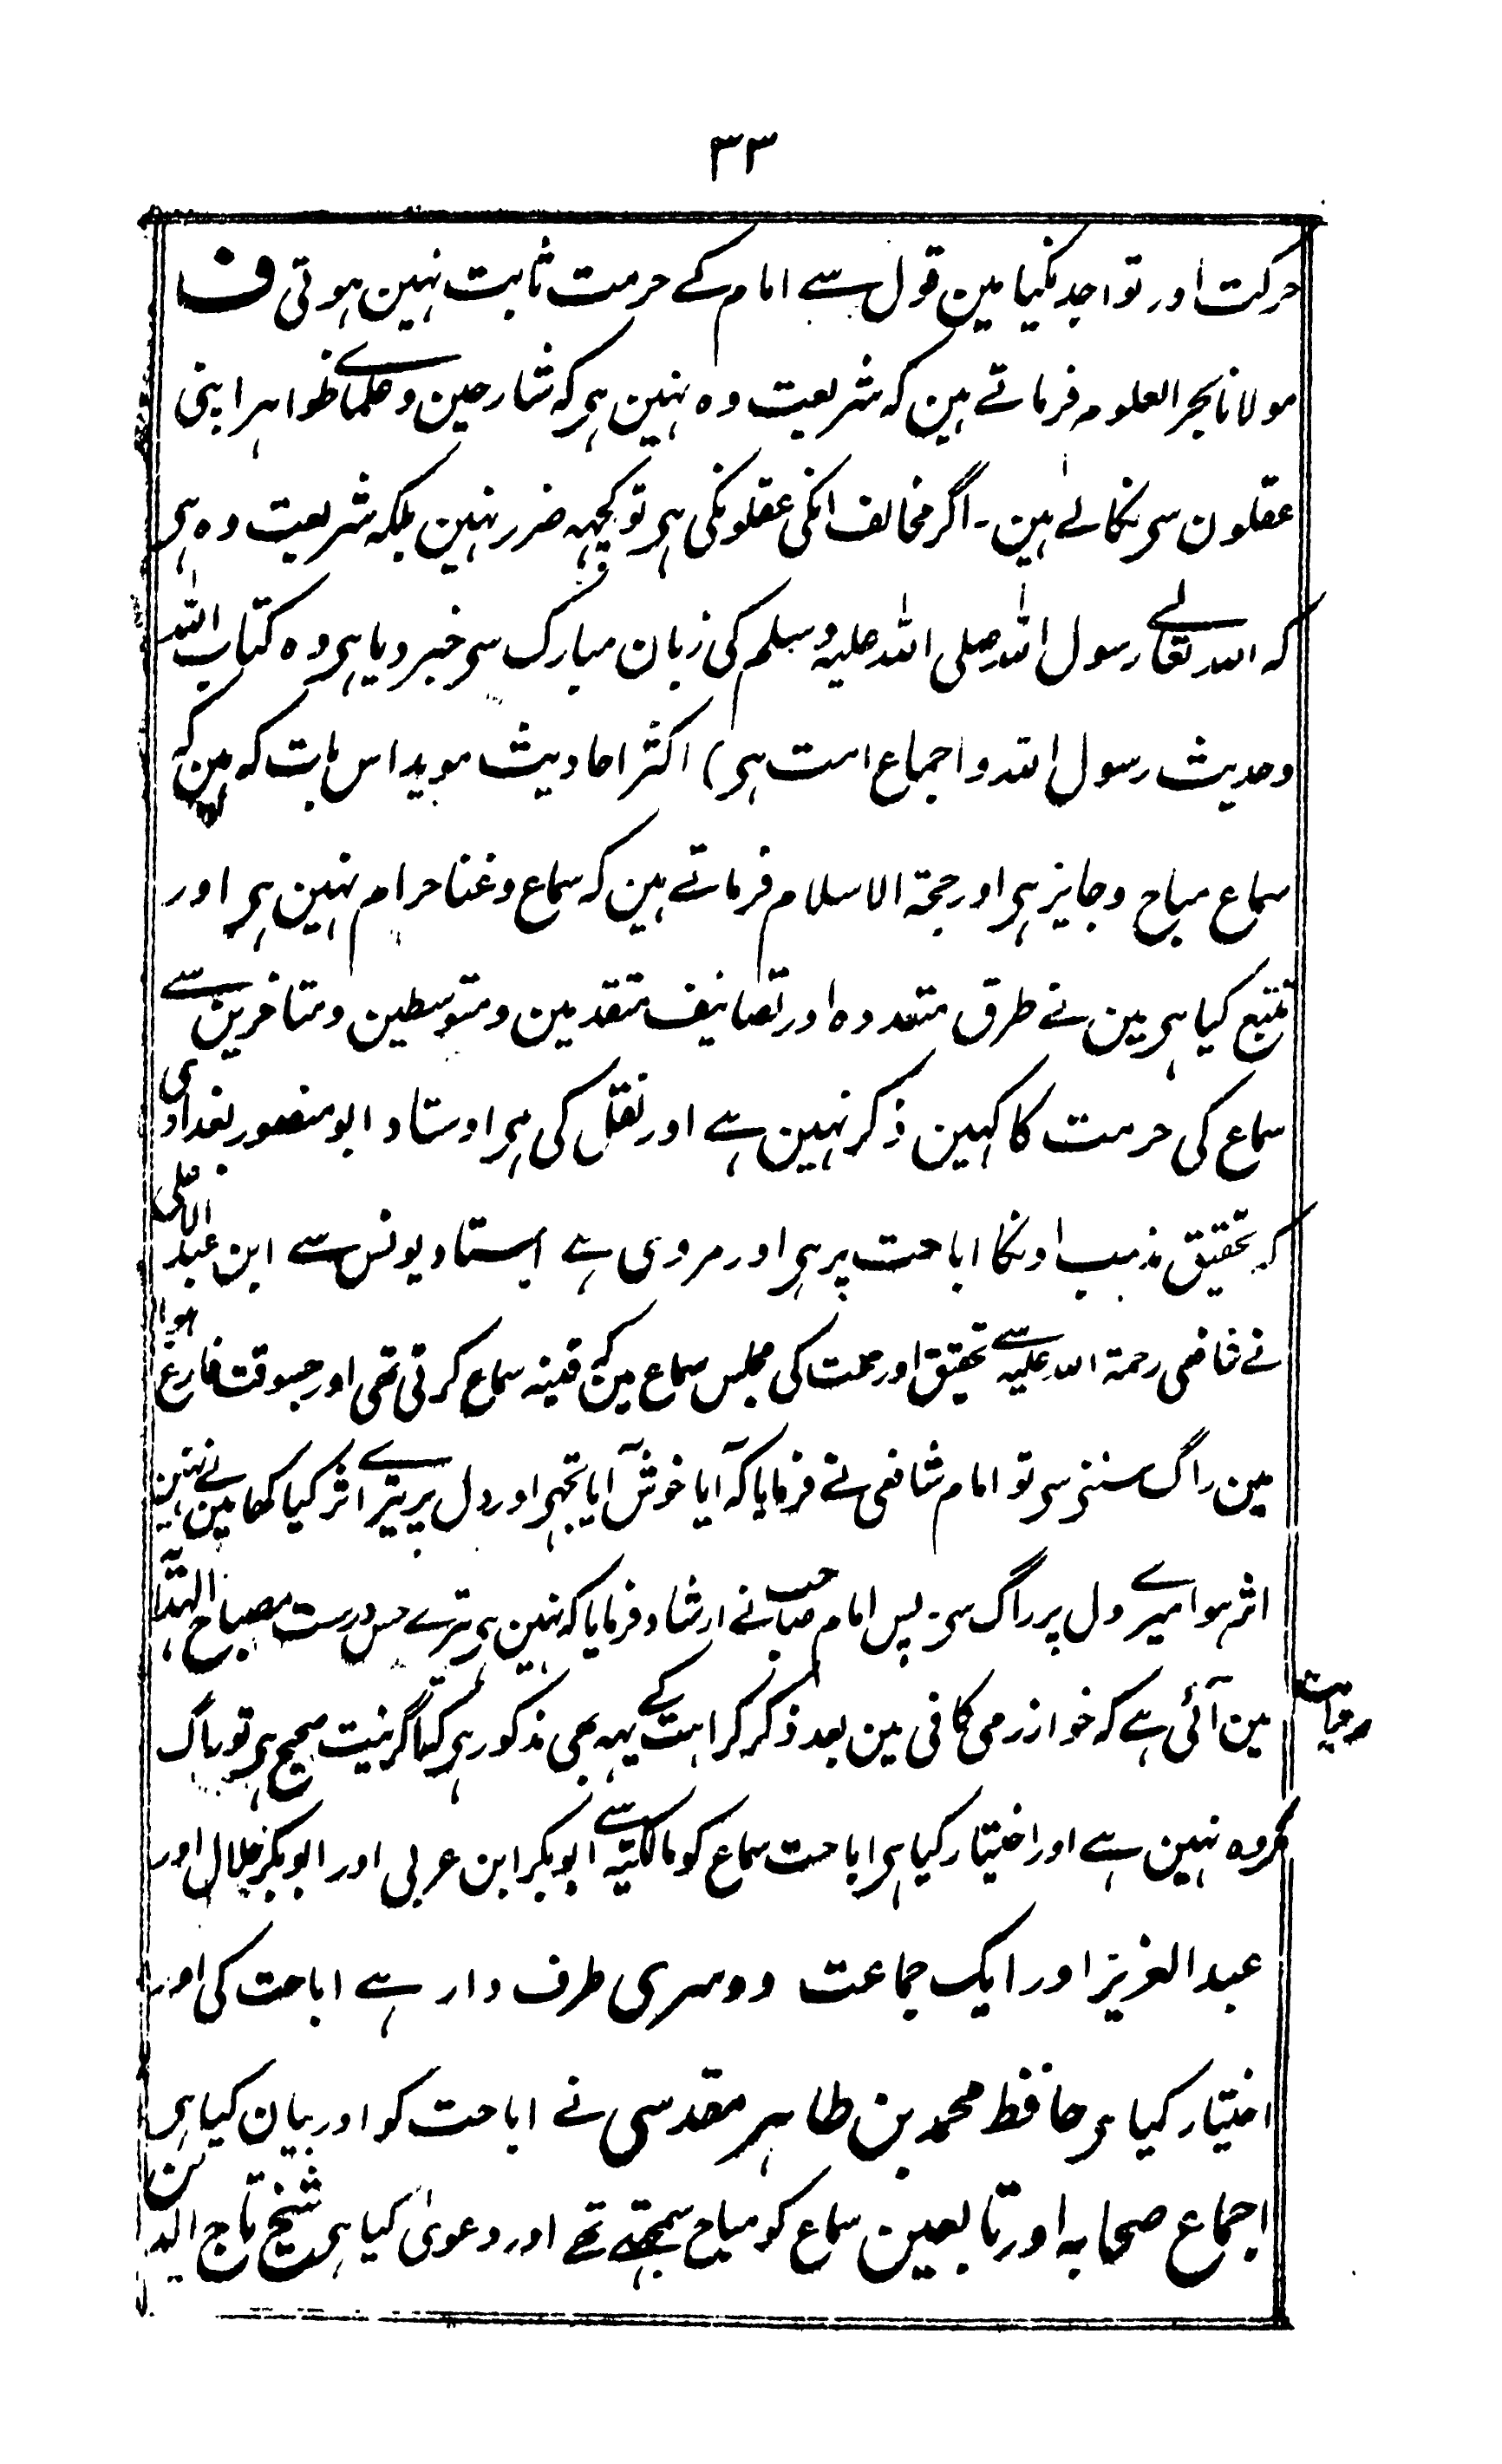 ٣٣
حرکت اور تواجد نکیا مین قول سے امام کے حرمت ثابت نہین ہوتی ف
مولانا بحر العلوم فرماتے ہین کہ شریعت وہ نہین ہی کہ شارحین و علمائے ظواہر اپنی
عقلون سی نکالے ہین - اگر مخالف انکی عقلونکی ہی تو کچہہ ضرر نہین بلکہ شریعت وہ ہی
کہ اللہ تعالے رسول اللہ صلی اللہ علیہ وسلم کی زبان مبارک سی خبر دیا ہی وہ کتاب اللہ
و حدیث رسول اللہ و اجماع امت ہی) اکثر احادیث موید اس بات کہ ہین کہ
سماع مباح و جایز ہی اور حجۃ الاسلام فرماتے ہین کہ سماع و غنا حرام نہین ہی اور
تتبع کیا ہی مین نے طرق متعددہ اور تصانیف متقدمین و متوسطین و متاخرین سے
سماع کی حرمت کا کہین ذکر نہین ہے اور نقل کی ہی اوستاد ابو منصور بغدادی
کہ تحقیق مذہب اونکا اباحت پر ہی اور مروی ہے استاد یونس سے ابن عبد الاعلی
نے شافعی رحمۃ اللہ علیہ سے تحقیق اور حلت کی مجلس سماع مین کہ قینہ سماع کرتی تھی اور جسوقت فارغ ہوا
مین راگ سننی سی تو امام شافعی نے فرمایا کہ آیا خوش آیا تجہی اور دل پر تیرے اثر کیا کہا مین نے نہین
اثر ہوا میرے دل پر راگ سی - پس امام صاحب نے ارشاد فرمایا کہ نہین ہی ترے حس درست مصباح الہدایہ
مین آئی ہے کہ خوارزمی کافی مین بعد ذکر کراہت کے یہہ بھی مذکور ہی کہ اگر نیت صحیح ہی تو راگ
روایت
مکروہ نہین ہے اور اختیار کیا ہی اباحت سماع کو مالکیہ سے ابوبکر ابن عربی اور ابوبکر خلال اور
عبد العزیز اور ایک جماعت دوسری طرف دار ہے اباحت کی اور
اختیار کیا ہی حافظ محمد بن طاہر مقدسی نے اباحت کو اور بیان کیا ہی
اجماع صحابہ اور تابعین سماع کو مباح سمجہتے تھے اور دعویٰ کیا ہی شیخ تاج الدین